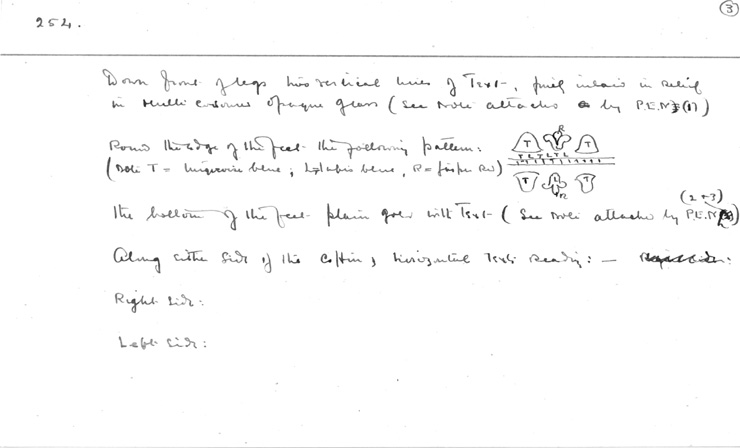 3
254.
Down front of legs two vertical lines of Text, finely inlaid in relief
in multi coloured opaque glass (See notes attached by P.E.N (1))
Round the edge of the feet the following pattern:
(Note T = turquoise blue; L = lapis blue, R = jasper red)
R
T T
T L T L T L
T L T
R
The bottom of the feet plain gold with Text (See notes attached by P.E.N
(2 + 3)
Along either side of the coffin, horizontal Texts reading: —
Right Side:
Left Side: